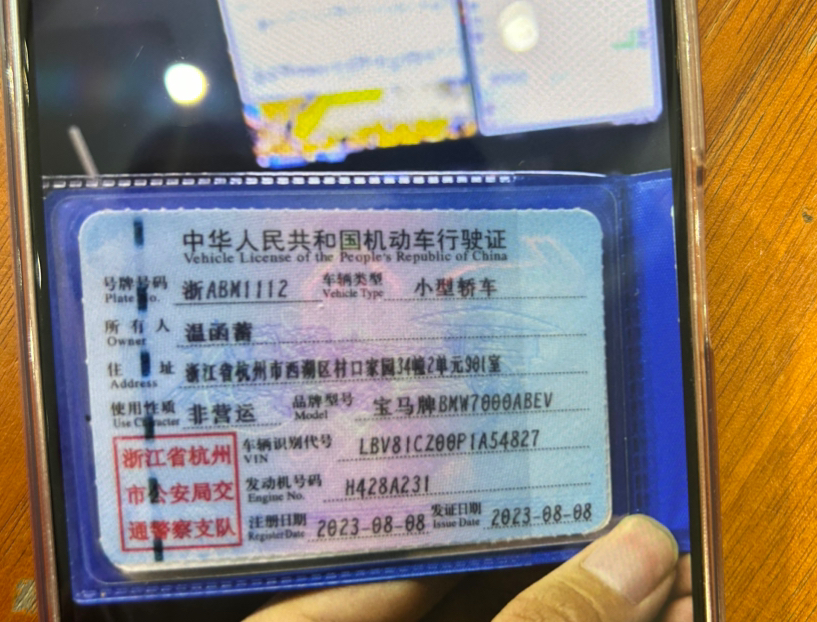 中华人民共和国机动车行驶证
Vehicle License of the People's Republic of China
号牌号码 浙ABM1112 车辆类型 小型轿车
Plate No. Vehicle Type
所有人 温函蓄
Owner
住址 浙江省杭州市西湖区村口家园34幢2单元901室
Address
使用性质 非营运 品牌型号 宝马牌BMW7000ABEV
Use Character Model
浙江省杭州市公安局交通警察支队
车辆识别代号 LBV81CZ00P1A54827
VIN
发动机号码 H428A231
Engine No.
注册日期 2023-08-08 发证日期 2023-08-08
Register Date Issue Date